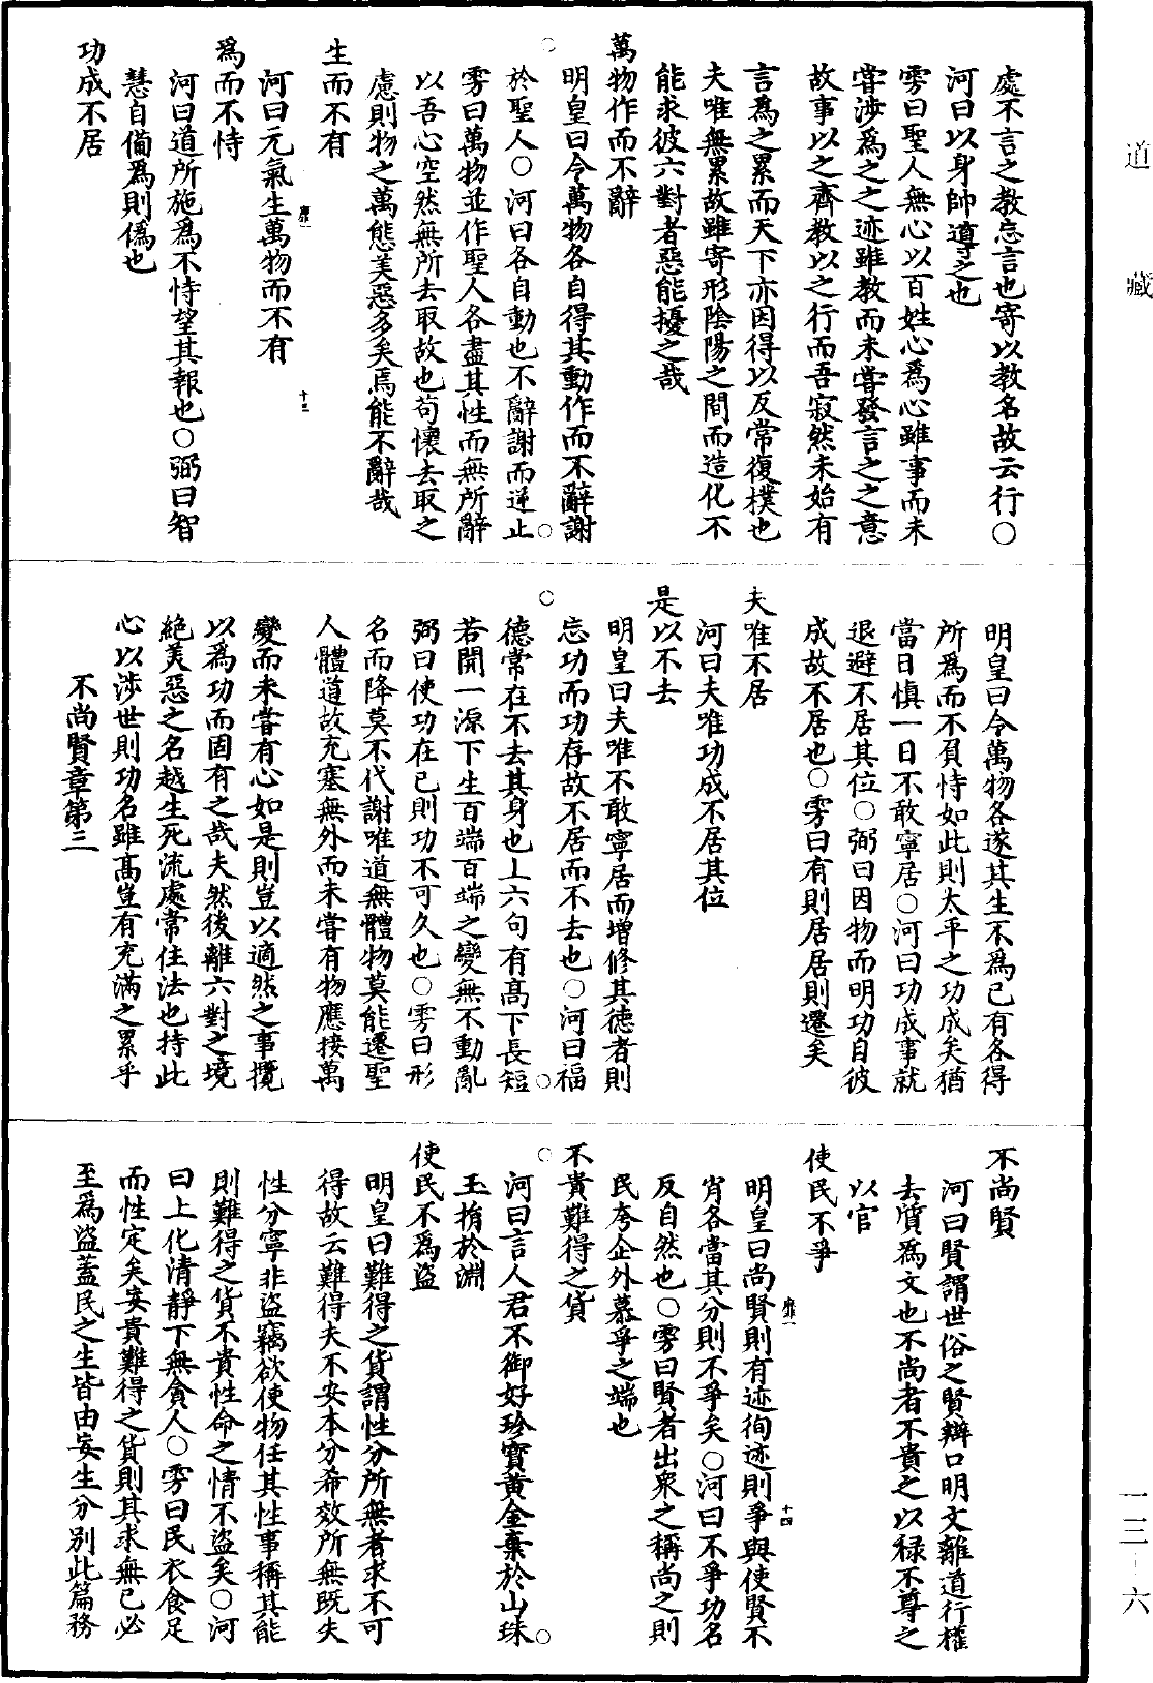 處不言之教忘言也寄以教名故云行〇
河曰以身帥導之也
雱曰聖人無心以百姓心爲心雖事而未
嘗涉爲之之迹雖教而未嘗發言之之意
故事以之齊教以之行而吾寂然未始有
言爲之累而天下亦因得以反常復樸也
夫唯無累故雖寄形陰陽之間而造化不
能求彼六對者惡能擾之哉
萬物作而不辭
明皇曰令萬物各自得其動作而不辭謝
於聖人〇河曰各自動也不辭謝而逆止
雱曰萬物並作聖人各盡其性而無所辭
以吾心空然無所去取故也苟懷去取之
慮則物之萬態美惡多矣焉能不辭哉
生而不有
河曰元氣生萬物而不有
十三
爲而不恃
河曰道所施爲不恃望其報也〇弼曰智
慧自備爲則僞也
功成不居
明皇曰令萬物各遂其生不爲已有各得
所爲而不負恃如此則太平之功成矣猶
當日慎一日不敢寧居〇河曰功成事就
退避不居其位〇弼曰因物而明功自彼
成故不居也〇雱曰有則居居則遷矣
夫唯不居
河曰夫唯功成不居其位
是以不去
明皇曰夫唯不敢寧居而增修其德者則
忘功而功存故不居而不去也〇河曰福
德常在不去其身也上六句有高下長短
若開一源下生百端百端之變無不動亂
弼曰使功在已則功不可久也〇雱曰形
名而降莫不代謝唯道無體物莫能遷聖
人體道故充塞無外而未嘗有物應接萬
變而未嘗有心如是則豈以適然之事攬
以爲功而固有之哉夫然後離六對之境
絕美惡之名越生死流處常住法也持此
心以涉世則功名雖高豈有充滿之累乎
不尚賢章第三
不尚賢
河曰賢謂世俗之賢辯口明文離道行權
去質爲文也不尚者不貴之以祿不尊之
以官
使民不爭
明皇曰尚賢則有迹徇迹則爭興使賢不
十四
肖各當其分則不爭矣〇河曰不爭功名
反自然也〇雱曰賢者出衆之稱尚之則
民夸企外慕爭之端也
不貴難得之貨
河曰言人君不御好珍寶黃金棄於山珠
玉捐於淵
使民不爲盜
明皇曰難得之貨謂性分所無者求不可
得故云難得夫不安本分希效所無既失
性分寧非盜竊欲使物任其性事稱其能
則難得之貨不貴性命之情不盜矣〇河
曰上化清靜下無貪人〇雱曰民衣食足
而性定矣妄貴難得之貨則其求無已必
至爲盜蓋民之生皆由妄生分別此篇務
道藏
一三—六